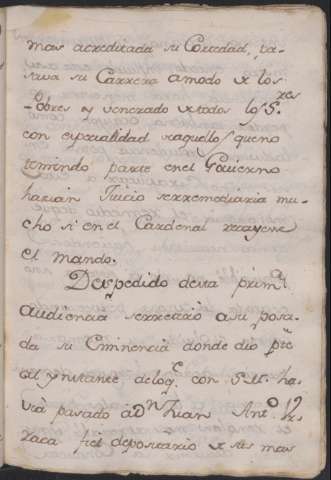 mas acreditada su Cortedad, pa-
sava su Carrera a modo de los
Pobres y venerado de todos los S.res
con especialidad de aquellos que no
teniendo parte en el Govierno
hacian Juicio se remediaria mu-
cho si en el Cardenal recayese
el mando.
Despedido de esta prim.ª
audiencia se retiró a su posa-
da su Eminencia donde dio p.te
al ynstante de lo q.e con S. M. ha-
via pasado a D.n Juan Ant.o
fiel depositario de sus mas